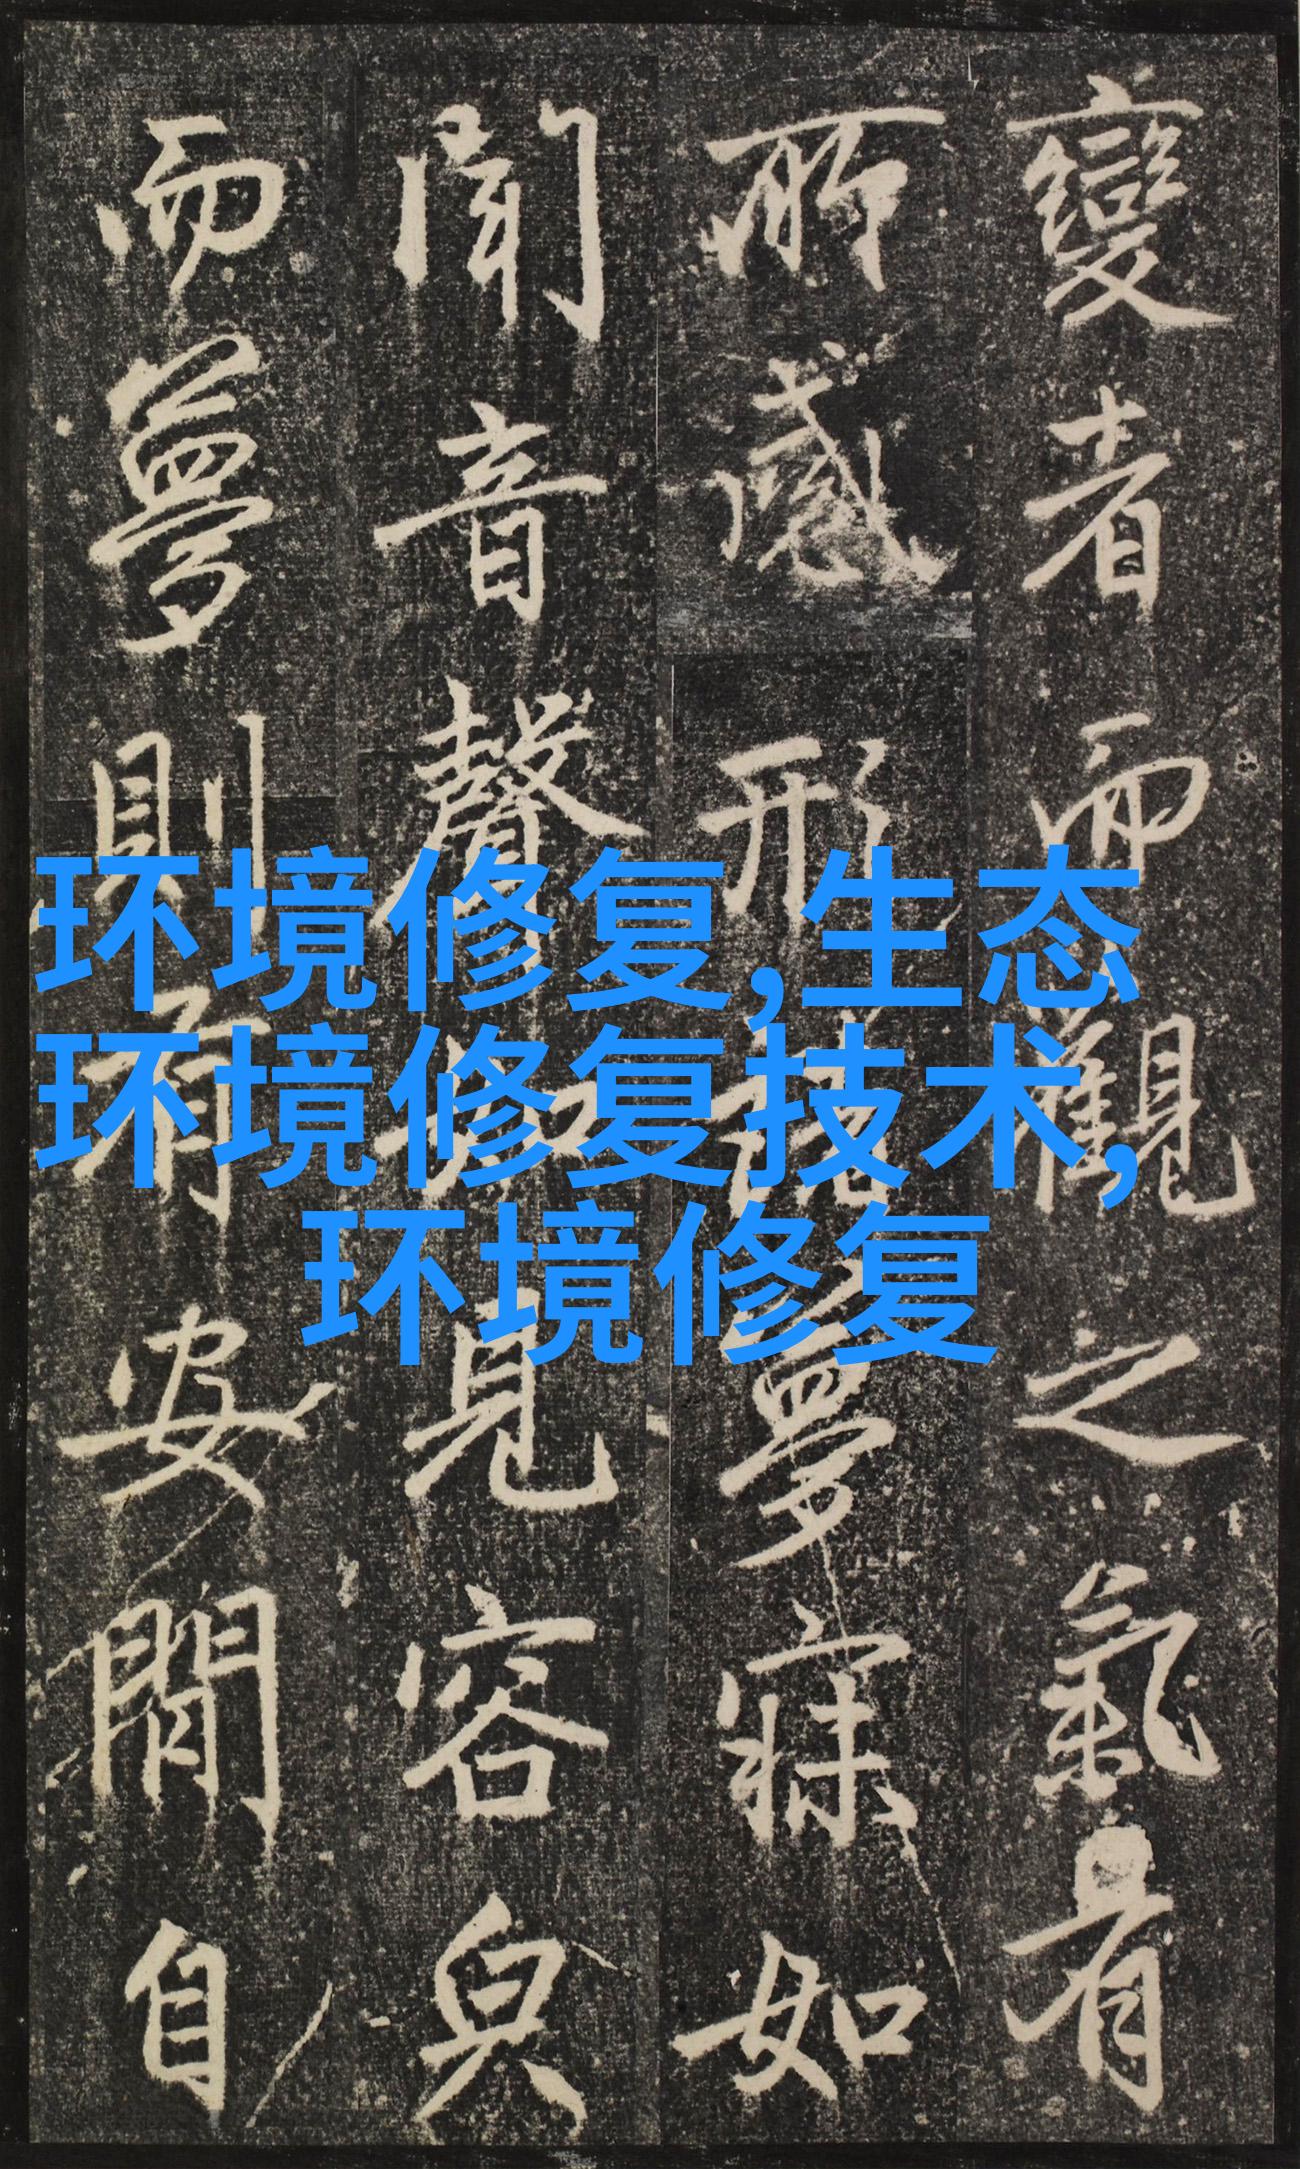 變者而觀之氣有
所感形諸夢寐如
聞音聲如見容皃
而夢則有安閒自
环境修复,生态
环境修复技术,
环境修复